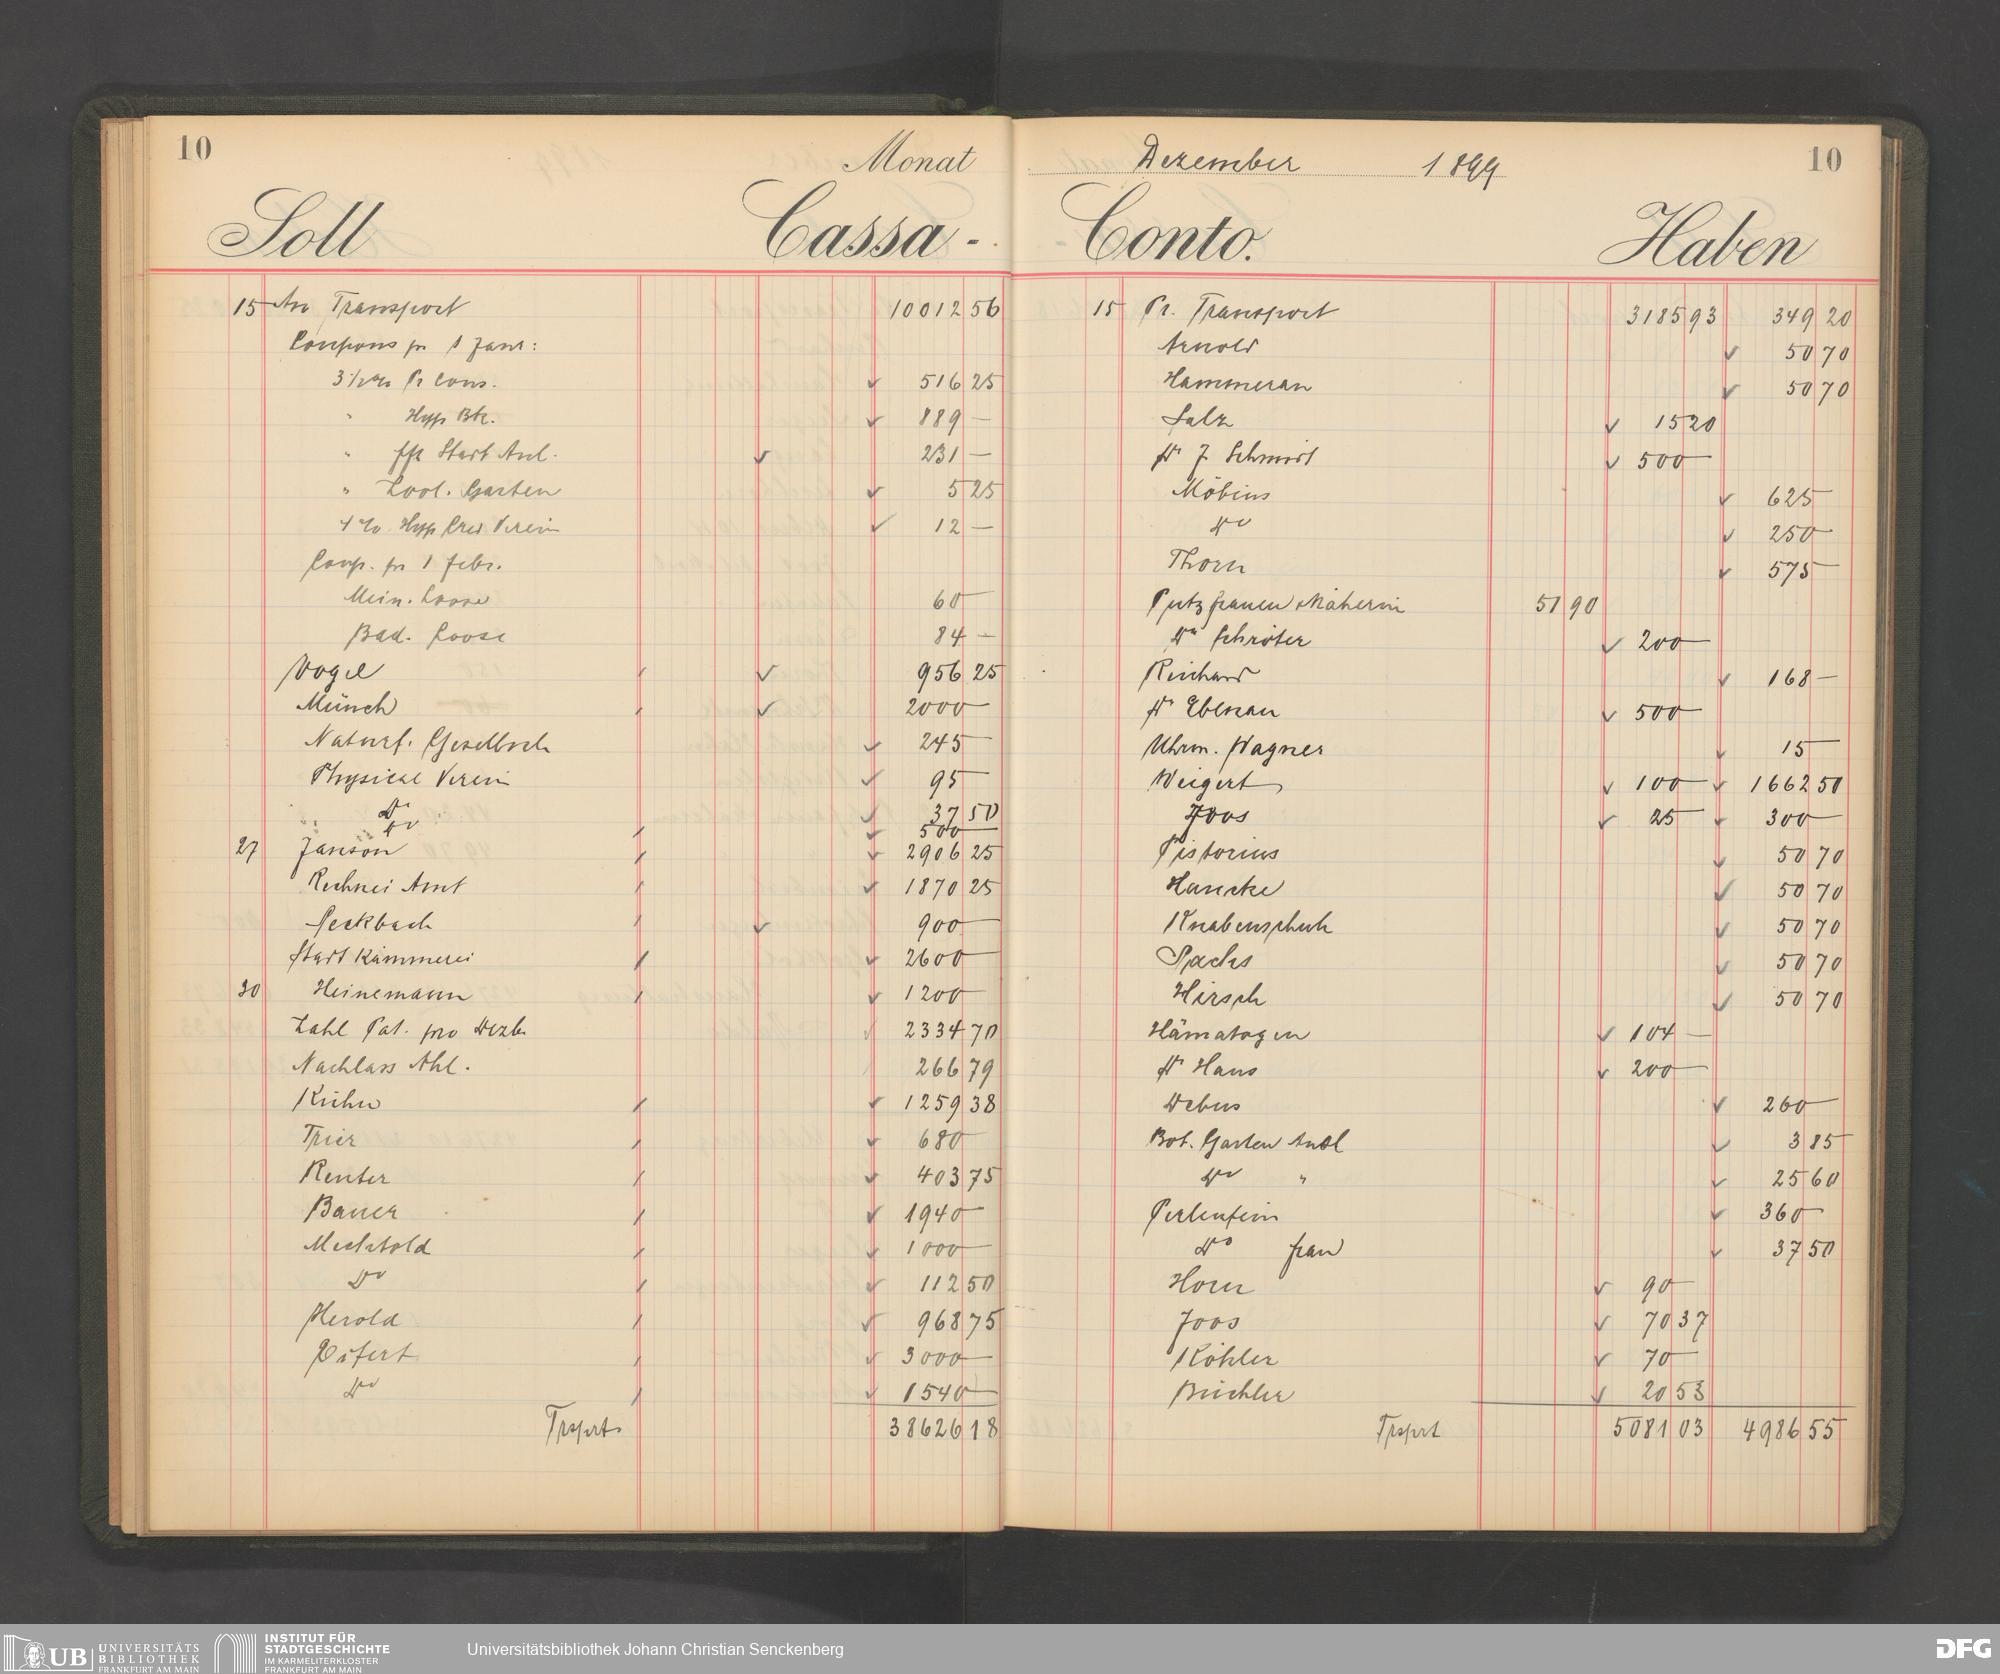 10
Monat
Soll
Cassa-
15 An Transport 10012 56
Coupons pr 1 Janr:
3 1/2 % Pr Cons. 516 25
" Hyp Bk. 889 —
" ffr Stadt Anl. 231 —
" Zool. Garten 5 25
4 % Hyp Cred Verein 12 —
Coup. pr 1 Febr.
Mein. Loose 60 —
Bad. Loose 84 —
Vogel 956 25
Münch 2000 —
Naturf. Gesellsch 245 —
Physical Verein 95 —
Do 37 50
Do 500 —
27 Janson 2906 25
Rechnei Amt 1870 25
Seckbach 900 —
Stadt Kämmerei 2600 —
30 Heinemann 1200 —
Zahl Pat. pro Dezbr 2334 70
Nachlass Ahl. 266 79
Kuhn 1259 38
Trier 680 —
Reuter 403 75
Bauer 1940 —
Mechtold 1000 —
Do 112 50
Herold 968 75
3000 —
Do 1540 —
Trsprt 38626 18
Dezember 1899
10
Conto.
Haben
15 Pr. Transport 3185 93 349 20
Arnold 50 70
Hammeran 50 70
Salz 15 20
Dr J Schmidt 500 —
Möbius 625 —
Do 250 —
Thorn 575 —
Putzfrauen Näherin 51 90
Dr Schröter 200 —
Reichard 168 —
Dr Ebenau 500 —
Uhrm. Wagner 15 —
Weigert 100 — 1662 50
Joos 25 — 300 —
Pistorius 50 70
Hancke 50 70
Knabenschuh 50 70
Sachs 50 70
Hirsch 50 70
Hämatogen 104 —
Dr Hans 200 —
Debus 260 —
Bot. Garten Ausl 3 85
Do " 25 60
Perlenfein 360 —
Do frau 37 50
Horn 90 —
Joos 70 37
Köhler 70 —
Büchler 20 53
Trsprt 5081 03 4986 55
UB UNIVERSITÄTS
BIBLIOTHEK
FRANKFURT AM MAIN
INSTITUT FÜR
STADTGESCHICHTE
IM KARMELITERKLOSTER
FRANKFURT AM MAIN
Universitätsbibliothek Johann Christian Senckenberg
DFG